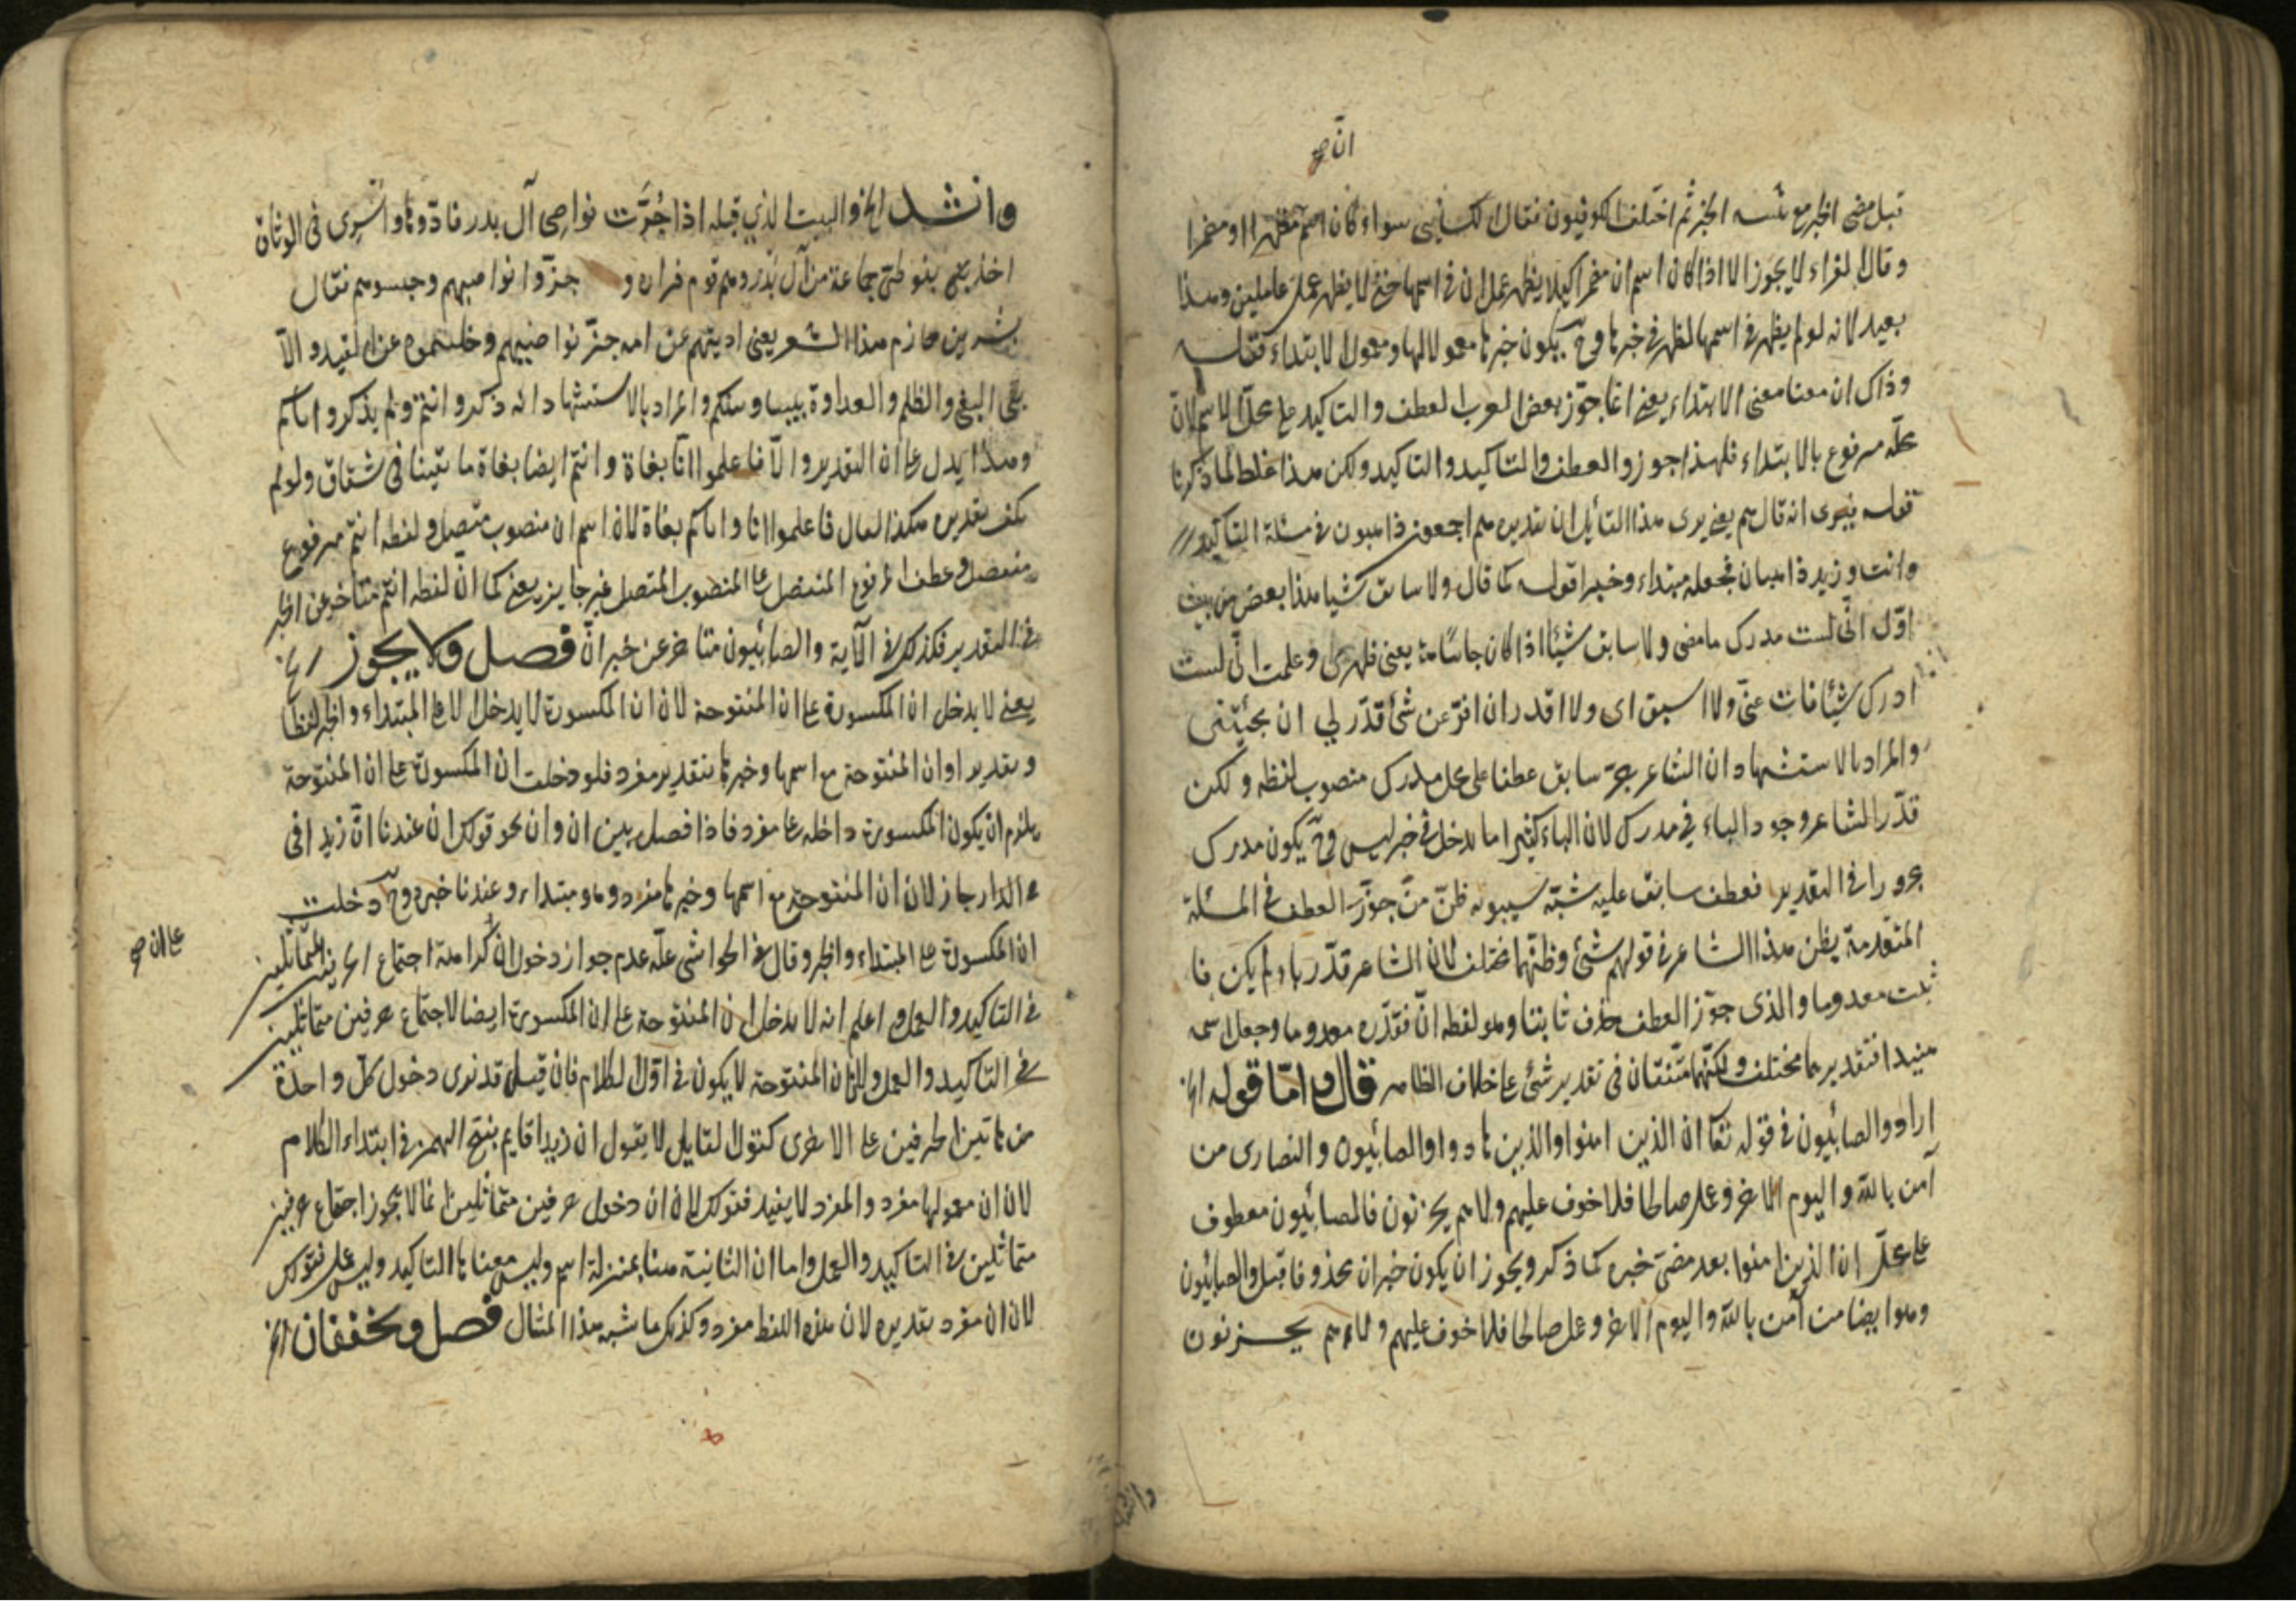 انّ صح
قبل مضى الخبر مع الخبر ثم اختلف الكوفيون فقال الكسائى سواء كان اسم مظهرا او مضمرا
وقال الفراء لا يجوز الا اذا كان اسم ان مضمرا كيلا يظهر عمل ان فى اسمها حتى لا يظهر عمل عاملين وهذا
بعيد لانه لو لم يظهر فى اسمها لظهر فى خبرها وح يكون خبرها معمولا لها ومعمول الابتداء قوله
وذاك ان معنا معنى الابتداء يعنى انما جوّز بعض العرب العطف والتاكيد على محلّ الاسم لانّ
محلّه مرفوع بالابتداء فلهذا جوزوا لعطف والتاكيد والتاكيد ولكن هذا غلط لما ذكرنا
قوله فيرى انه قال هم يعنى يرى هذا القائل ان تقديره هم اجمعون ذاهبون فى مسئلة التاكيد
وانت وزيد ذاهبان فجعله مبتداء وخبرا قوله كما قال ولا سابق شيا هذا بعض من بيت
اوّله انّى لست مدرك ما مضى ولا سابق شيئا اذا كان جائيا يعنى ظهر لى وعلمت انّى لست
ادرك شيئا فات عنّى ولا اسبق اى ولا اقدر ان افرّ عن شئ قدّر لى ان يجيئنى
والمراد بالاستشهاد ان الشاعر جرّ سابق عطفا على محل مدرك منصوب لفظه ولكن
قدّر الشاعر وجود الباء فى مدرك لان الباء كثيرا ما يدخل فى خبر ليس وح يكون مدرك
مجرورا فى التقدير فعطف سابق عليه شبّه سيبويه ظنّ من جوّز العطف فى المسئلة
المتقدمة بظن هذا الشاعر فى توهم شئ وظنهما مختلف لان الشاعر قدّر باء ولم يكن فا
ثبت معدوما والذى جوّز العطف حذف ثابتا وهو لفظه انّ فقدّره معدوما وجعل اسمه
مبتدا فتقديرهما مختلف ولكنهما متّفقتان فى تقدير شئ على خلاف الظاهر قال وامّا قوله الخ
اراد والصابئون فى قوله تعا ان الذين امنوا والذين هادوا والصابئون والنصارى من
آمن بالله واليوم الاخر وعمل صالحا فلا خوف عليهم ولا هم يحزنون فالصابئون معطوف
على محلّ ان الذين امنوا بعد مضى خبره كما ذكر ويجوز ان يكون خبر ان محذوفا قبل والصابئون
وهو ايضا من آمن بالله واليوم الاخر وعمل صالحا فلا خوف عليهم ولا هم يحزنون
وانشد الخ والبيت الذى قبله اذا جُزَّت نواصى آل بدر فادّوها واسرى فى الوثاق
اخذ يعنى بنو طئ جماعة من آل بدر وهم قوم فزاره و جزّوا نواصيهم وحبسوهم فقال
بشر بن حازم هذا الشعر يعنى اديتهم عن امه جزّ نواصيهم وخلّصتموه عن القيد والّا
بقى البغى والظلم والعداوة بيننا وبينكم والمراد بالاستشهاد انه ذكر وانتم ولم يذكر واياكم
وهذا يدل على ان التقدير والّا فاعلموا انّا بغاة وانتم ايضا بغاة ما بقينا فى شقاق ولو لم
يكن تقديره هكذا لقال فاعلموا انا واياكم بغاة لان اسم ان منصوب متصل ولفظه انتم مرفوع
منفصل وعطف المرفوع المنفصل على المنصوب المتصل غير جايز يعنى كما انّ لفظه انتم متاخر عن الخبر
فى التقدير فكذلك فى الآية والصابئون متاخر عن خبر انّ فصل ولا يجوز الخ
يعنى لا يدخل ان المكسورة على ان المفتوحة لان ان المكسورة لا يدخل الا على المبتداء والخبر لفظا
وتقديرا وان المفتوحة مع اسمها وخبرها بتقدير مفرد فلو دخلت ان المكسورة على ان المفتوحة
يلزم ان يكون المكسورة داخله على مفرد فاذا فصل بين ان وان نحو قولك ان عندنا انّ زيدا فى
الدار جاز لان ان المفتوحة مع اسمها وخبرها مفرد وهو مبتداء وعندنا خبره وح دخلت
ان المكسورة على المبتداء والخبر وقال فى الحواشى علّه عدم جواز دخول ان كراهة اجتماع الحرفين المتماثلين
على ان صح
فى التاكيد والعمل واعلم انه لا يدخل ان المفتوحة على ان المكسورة ايضا لاجتماع حرفين متماثلين
فى التاكيد والعمل ولان ان المفتوحة لا يكون فى اوّل الكلام فان قيل قد نرى دخول كلّ واحدة
من هاتين الحرفين على الاخرى كقول القايل لا يقول ان زيدا قايم بفتح الهمزة فى ابتداء الكلام
لان ان معمولها مفرد والمفرد لا يفيد فقولك لان ان دخول حرفين متماثلين انما لا يجوز اجتماع حرفين
متماثلين فى التاكيد والعمل واما ان الثانية هنا بمنزلة اسم وليس معناها التاكيد وليس عمل فقولك
لان ان مفرد تقديره لان هذه اللفظ مفرد وكذلك ما شبه هذا المثال فصل ويخففان الخ